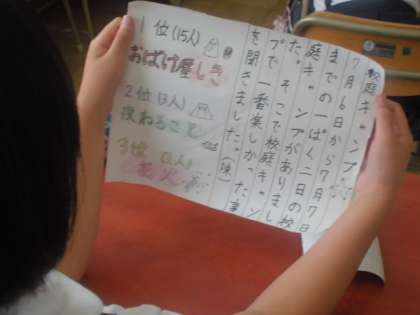 校庭キャンプ
7月6日から7月7日
までの一ぱく二日の校
庭キャンプがありまし
た。そこで校庭キャン
プで一番楽しかった事
を聞きました。
1位(15人)
おばけ屋しき
2位(3人)
夜ねること
3位(2人)
花火